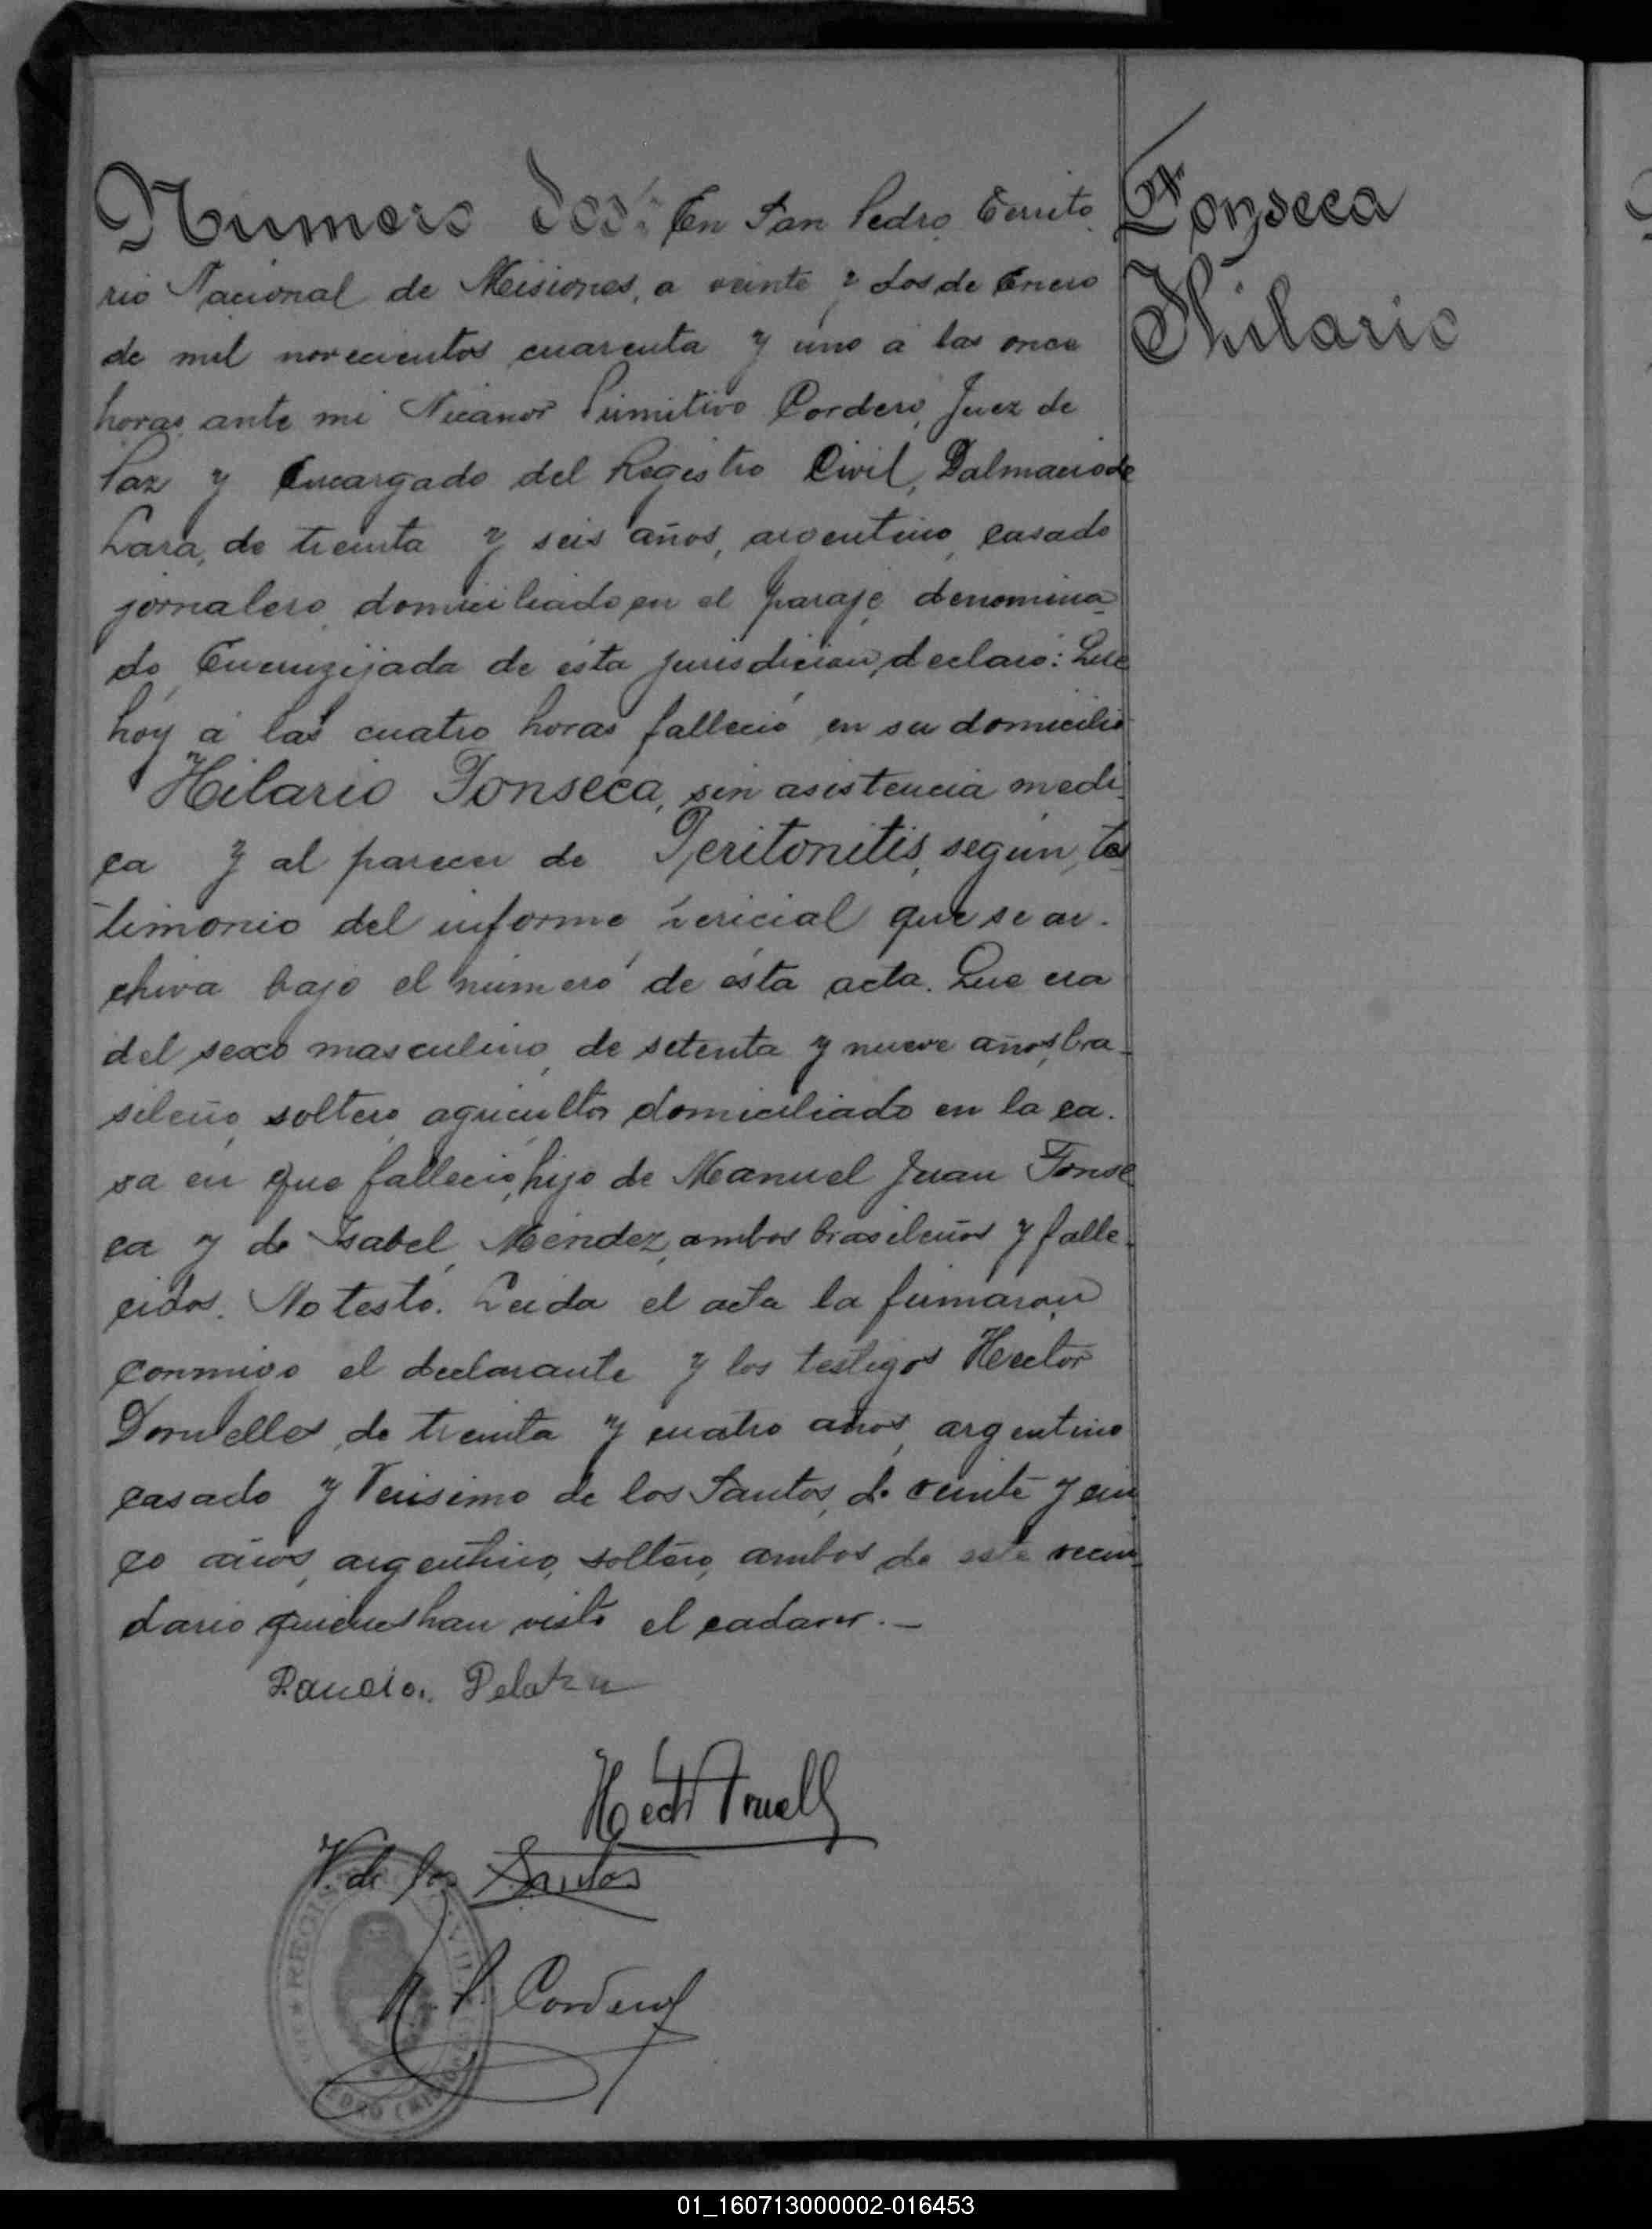 Numero dos: En San Pedro Territo
rio Nacional de Misiones, a veinte y dos de Enero
de mil novecientos cuarenta y uno a las once
horas ante mi Nicanor Primitivo Cordero, Juez de
Paz y Encargado del Registro Civil, Dalmacio de
Lara, de treinta y seis años, argentino, casado
jornalero, domiciliado en el paraje denomina
do Encruzijada de ésta jurisdicion, declaro: Que
hoy á las cuatro horas falleció en su domicilio
Hilario Fonseca, sin asistencia medi
ca y al parecer de Peritonitis, según, tes
timonio del informe pericial que se ar-
chiva bajo el número de ésta acta. Que era
del sexo masculino, de setenta y nueve años, bra-
sileño, soltero, agricultor domiciliado en la ca-
sa en que falleció, hijo de Manuel Juan Fonse
ca y de Isabel Méndez, ambos brasileños y falle-
cidos. No testó. Leida el acta la firmaron
conmigo el declarante y los testigos Hector
Dornelles, de treinta y cuatro años, argentino
casado y Verisimo de los Santos, de veinte y cin
co años, argentino, soltero, ambos de este vecin-
dario quienes han visto el cadaver.-
V. de los Santos
N. P. Cordero
Fonseca
Hilario
01_160713000002-016453